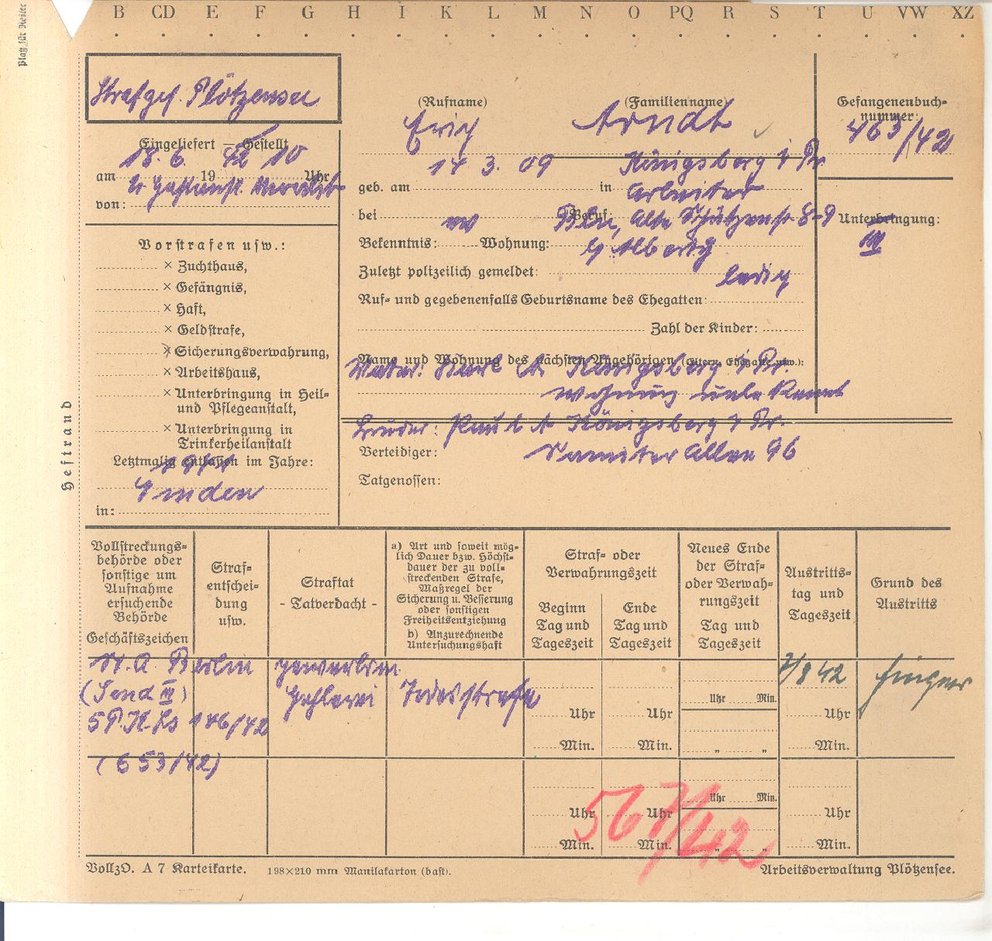 B CD E F G H I K L M N O PQ R S T U VW XZ
Platz für Reiter
Heftrand
Strafgef. Plötzensee
(Rufname) (Familienname)
Erich Arndt
Gefangenenbuch-
nummer:
463/42
Eingeliefert – Gestellt
18. 6. 42 10
am 19 Uhr
von:
14 3. 09 Königsberg i Pr
geb. am in
Arbeiter
bei Beruf:
Bln, Alte Schützenstr 8–9
Bekenntnis: Wohnung:
b/ Alberg
Zuletzt polizeilich gemeldet:
ledig
Ruf- und gegebenenfalls Geburtsname des Ehegatten:
Zahl der Kinder:
Unterbringung:
III
Vorstrafen usw.:
× Zuchthaus,
× Gefängnis,
× Haft,
× Geldstrafe,
× Sicherungsverwahrung,
× Arbeitshaus,
× Unterbringung in Heil-
und Pflegeanstalt,
× Unterbringung in
Trinkerheilanstalt
Letztmalig entlassen im Jahre:
Emden
in:
Name und Wohnung des nächsten Angehörigen (Eltern, Ehegatte usw.):
Vater: Karl A. Königsberg i Pr.
Wohnung unbekannt
Bruder: Paul A Königsberg i Pr.
Verteidiger:
Samiter Allee 96
Tatgenossen:
Vollstreckungs-
behörde oder
sonstige um
Aufnahme
ersuchende
Behörde
Geschäftszeichen
Straf-
entschei-
dung
usw.
Straftat
- Tatverdacht -
a) Art und soweit mög-
lich Dauer bzw. Höchst-
dauer der zu voll-
streckenden Strafe,
Maßregel der
Sicherung u. Besserung
oder sonstigen
Freiheitsentziehung
b) Anzurechnende
Untersuchungshaft
Straf- oder
Verwahrungszeit
Beginn
Tag und
Tageszeit
Ende
Tag und
Tageszeit
Neues Ende
der Straf-
oder Verwah-
rungszeit
Tag und
Tageszeit
Austritts-
tag und
Tageszeit
Grund des
Austritts
St. A. Berlin gewerbsm.
(Send III) Hehlerei Todesstrafe
5 P. K. Ls 186/42
(653/42)
7/8 42 hinger
Uhr Min.
Uhr Uhr Uhr
Min. Min. „ „ Min.
Uhr Min.
Uhr Uhr Uhr
Min. Min. „ „ Min.
567/42
VollzO. A 7 Karteikarte. 198×210 mm Manilakarton (bast). Arbeitsverwaltung Plötzensee.